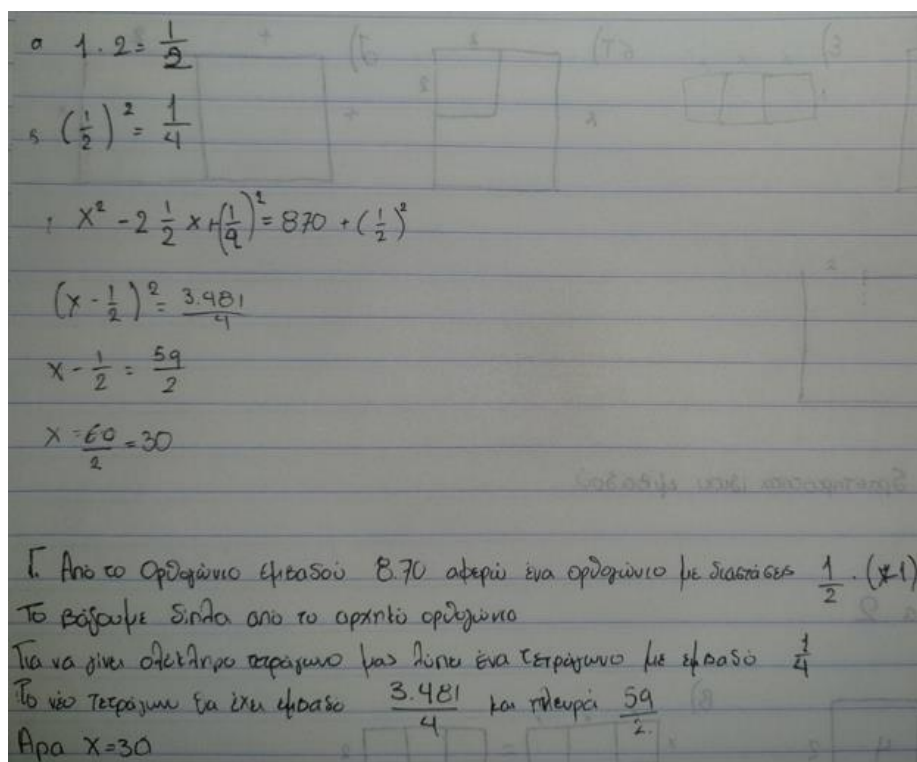 α 1 . 2 = 1/2
β (1/2)² = 1/4
γ x² - 2 1/2 x + (1/2)² = 870 + (1/2)²
(x - 1/2)² = 3.481/4
x - 1/2 = 59/2
x = 60/2 = 30
Γ. Από το ορθογώνιο εμβαδού 8.70 αφερώ ένα ορθογώνιο με διαστάσεις 1/2 . (x-1)
Το βάζουμε δίπλα από το αρχητό ορθογώνιο
Για να γίνει ολόκληρο τετράγωνο μας λύπει ένα τετράγωνο με εμβαδό 1/4
Το νέο τετράγωνο θα έχει εμβαδό 3.481/4 και πλευρά 59/2.
Άρα x=30